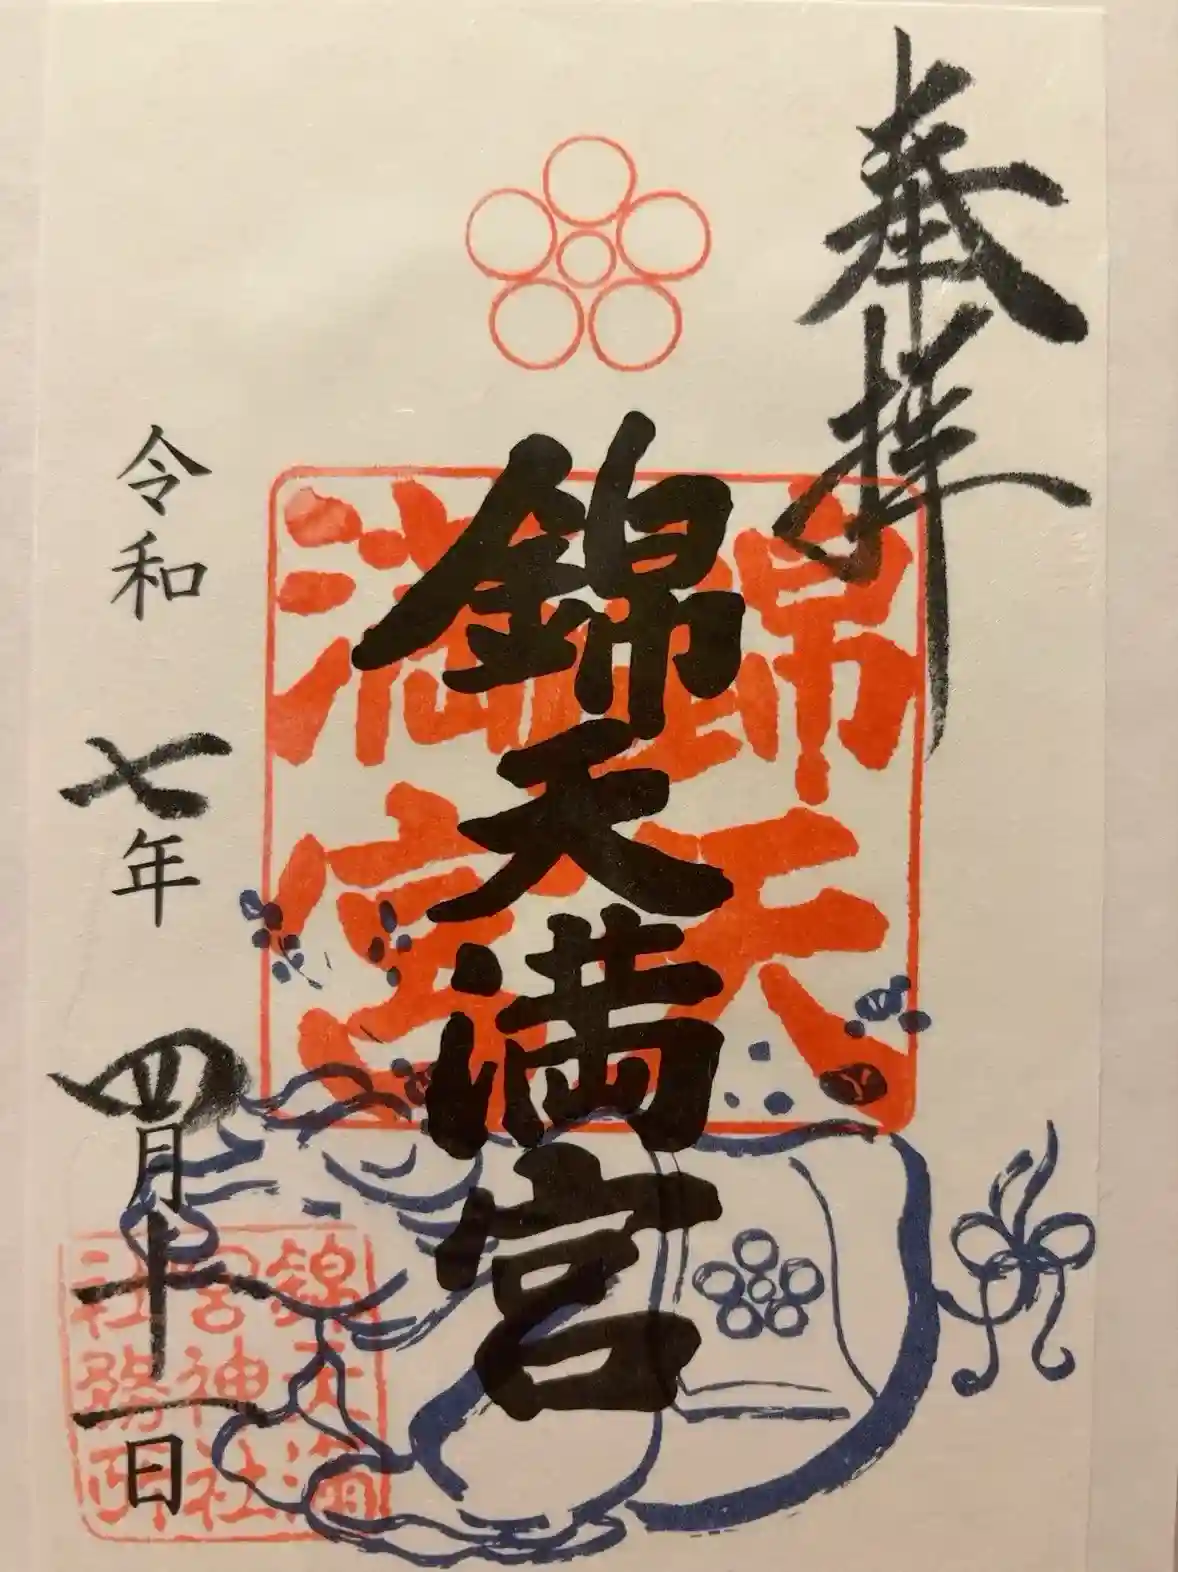 奉拝
錦天
満宮
錦天満宮
令和七年四月十一日
錦天満
宮神社
社務所